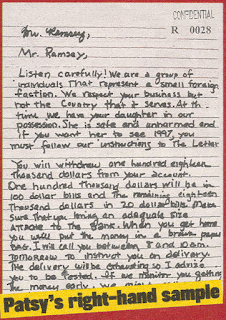 CONFIDENTIAL
R 0028
Mr. Ramsey,
Listen carefully! We are a group of
individuals that represent a small foreign
faction. We respect your business but
not the country that it serves. At this
time we have your daughter in our
possession. She is safe and unharmed and
if you want her to see 1997, you
must follow our instructions to the letter
You will withdraw one hundred eighteen
thousand dollars from your account.
One hundred thousand dollars will be in
100 dollar bills and the remaining eighteen
thousand dollars in dollar bills. Make
sure that you bring an adequate size
attache to the bank. When you get home
you will put the money in a brown paper
bag. I will call you between 8 and 10 am
tomorrow to instruct you on delivery.
The delivery will be exhausting so I advise
you to be rested. If we monitor you getting
the money early, we
Patsy's right-hand sample